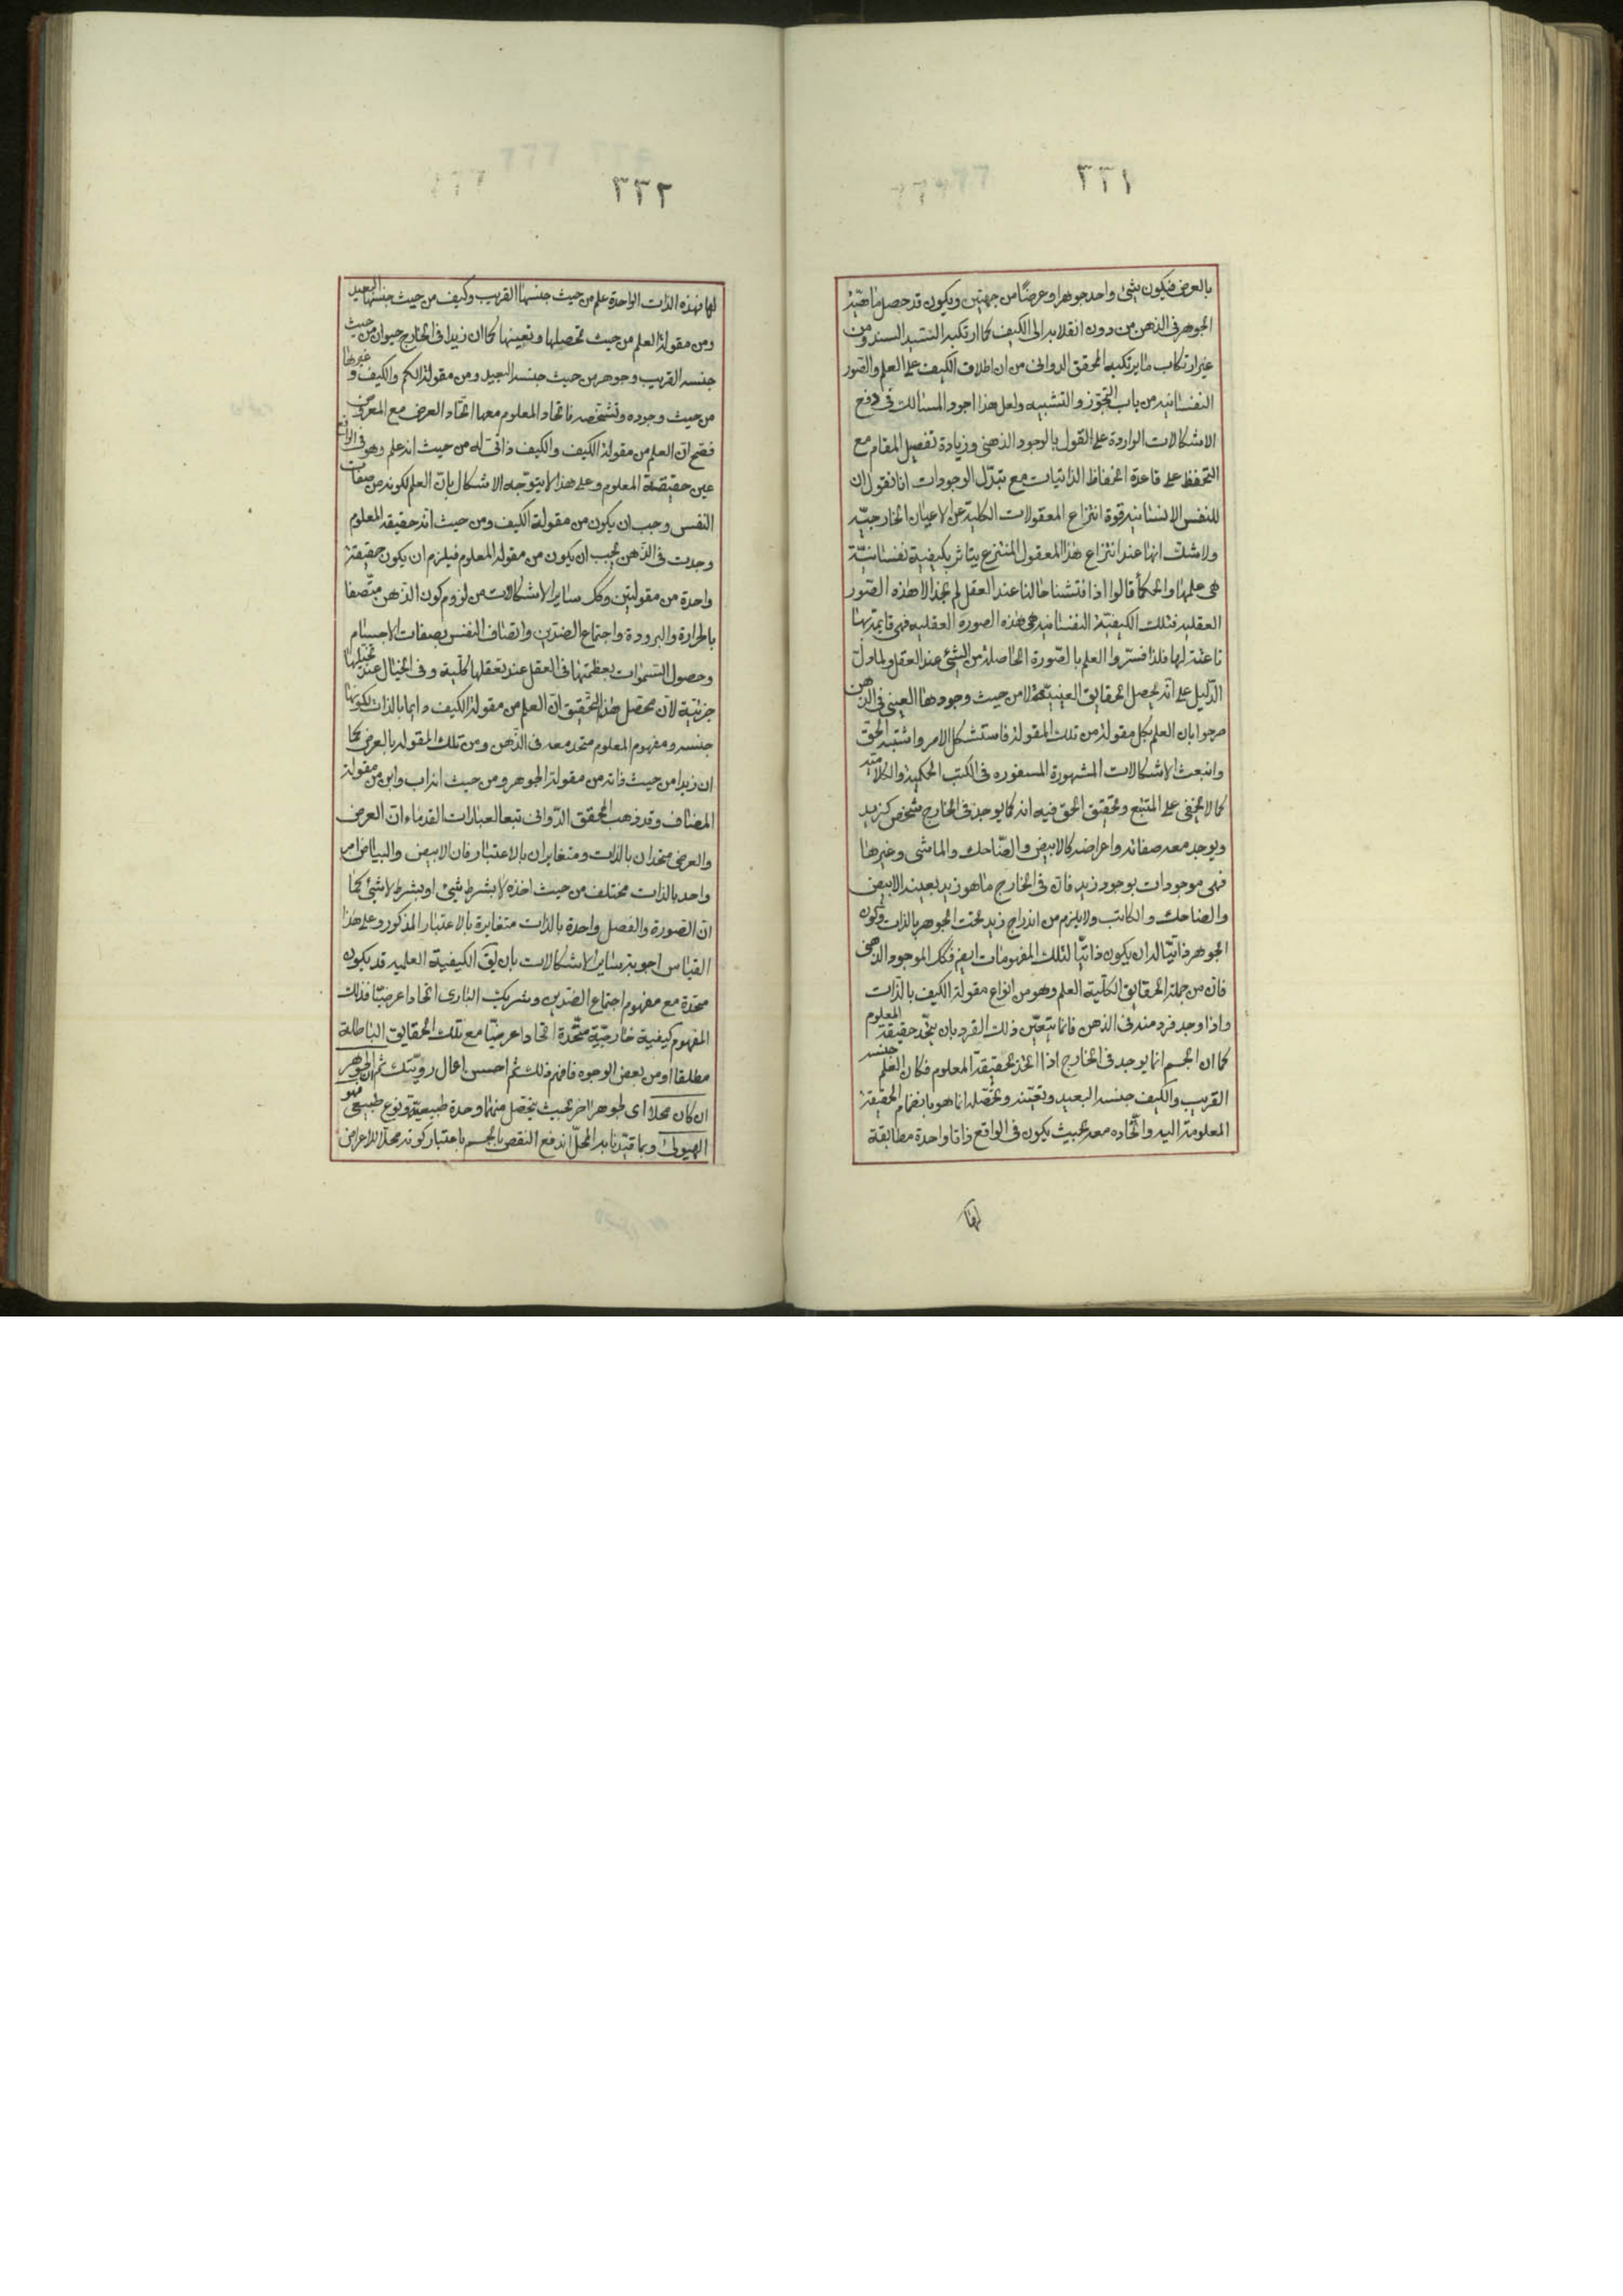 ٣٣١
بالعرض فيكون شئ واحد جوهرا وعرضًا من جهتين ويكون قد حصل ماهيّة
الجوهر فى الذهن من دون انقلابه الى الكيف كما ارتكبه السّيّد السند ومن
غير ارتكاب ما يرتكبه المحقق الدوانى من ان اطلاق الكيف على العلم والصور
النفسانيه من باب التجوّز والتشبيه ولعل هذا اجود المسالك فى دفع
الاشكالات الواردة على القول بالوجود الذهنى وزيادة تفصيل المقام مع
التحفظ على قاعدة انحفاظ الذاتيات مع تبدّل الوجودات انا نقول ان
للنفس الانسانيه قوة انتزاع المعقولات الكلية عن الاعيان الخارجيّه
ولا شك انها عند انتزاع هذا المعقول المنتزع يتاثر بكيفية نفسانيّة
هى علمها والحكماء قالوا اذا فتشنا حالنا عند العقل لم نجد الا هذه الصّور
العقليه فتلك الكيفيّة النفسانيه هى هذه الصورة العقليه فهى قايمة بها
ناعتة لها فلذا فسّروا العلم بالصّورة الحاصلة من الشئ عند العقل ولما دلّ
الدّليل على انّه يحصل الحقايق العينيّة لا من حيث وجودها العينى فى الذهن
صرحوا بان العلم بكل مقولة من تلك المقولة فاستشكل الامر واشتبه الحق
وانبعث الاشكالات المشهورة المسفوره فى الكتب الحكمية والكلاميّه
كما لا يخفى على المتتبع وتحقيق الحق فيه انه كما يوجد فى الخارج شخص كزيد
ويوجد معه صفاته واعراضه كالابيض والضّاحك والماشى وغيرها
فهى موجودات بوجود زيد فان فى الخارج ما هو زيد بعينه الابيض
والضاحك والكاتب ولا يلزم من اندراج زيد تحت الجوهر بالذات وكون
الجوهر ذاتيّا له ان يكون ذاتيّا لتلك المفهومات ايضا فكك الموجود الذهنى
فان من جملة الحقايق الكلّية العلم وهو من انواع مقولة الكيف بالذات
واذا وجد فرد منه فى الذهن فانما يتعيّن ذلك الفرد بان يتّحد حقيقة المعلوم
كما ان الجسم انما يوجد فى الخارج اذا اتحد بحقيقة المعلوم فكان العلم جنسه
القريب والكيف جنسه البعيد وتعيّنه وتحصّله انما هو بانضمام الحقيقة
المعلومة اليه واتّحاده معه بحيث يكون فى الواقع ذاتا واحدة مطابقة
لها
٣٣٢
لها فهذه الذات الواحدة علم من حيث جنسها القريب وكيف من حيث جنسها البعيد
ومن مقولة العلم من حيث تحصيلها وتعينها كما ان زيدا فى الخارج حيوان من حيث
جنسه القريب وجوهر من حيث جنسه البعيد ومن مقولة الكم والكيف وغيرها
من حيث وجوده وتشخصه فاتحاد المعلوم معها اتحاد العرض مع المعروض
فصح ان العلم من مقولة الكيف والكيف ذاتى له من حيث انه علم وهو فى الواقع
عين حقيقة المعلوم وعلى هذا لا يتوجه الاشكال بان العلم لكونه من صفات
النفس وجب ان يكون من مقولة الكيف ومن حيث انه حقيقة المعلوم
وجدت فى الذّهن يجب ان يكون من مقولة المعلوم فيلزم ان يكون حقيقة
واحدة من مقولتين وكك ساير الاشكالات من لزوم كون الذهن متّصفا
بالحرارة والبرودة واجتماع الضدّين واتصاف النفس بصفات الاجسام
وحصول السّموات بعظمتها فى العقل عند تعقلها كليّة وفى الخيال عند تخيّلها
جزئية لان محصّل هذا التّحقيق ان العلم من مقولة الكيف دايما بالذات لكونها
جنسه ومفهوم المعلوم متحد معه فى الذّهن ومن تلك المقوله بالعرض كما
ان زيدا من حيث ذاته من مقولة الجوهر ومن حيث انه اب وابن من مقولة
المضاف وقد ذهب المحقق الدّوانى تبعا لعبارات القدماء ان العرض
والعرضى متحدان بالذات ومتغايران بالاعتبار فان الابيض والبياض امر
واحد بالذات مختلف من حيث اخذه لا بشرط شئ او بشرط لا شئ كما
ان الصّورة والفصل واحدة بالذات متغايرة بالاعتبار المذكور وعلى هذا
القياس اجوبة ساير الاشكالات بان يق الكيفية العلميه قد يكون
متحدة مع مفهوم اجتماع الضدّين وشريك البارى اتحادا عرضيّا فذلك
المفهوم كيفية خارجيّة متّحدة اتحادا عرضيّا مع تلك الحقايق الباطلة
مطلقا او من بعض الوجوه فافهم ذلك ثم احسن اعمال رويّتك ثم ان الجوهر
ان كان محلا اى لجوهر اخر بحيث يتحصّل منهما وحدة طبيعيّة ونوع طبيعى فهو
الهيولى وبما قيّدنا به المحلّ اندفع النقض بالجسم باعتبار كونه محلّا للاعراض